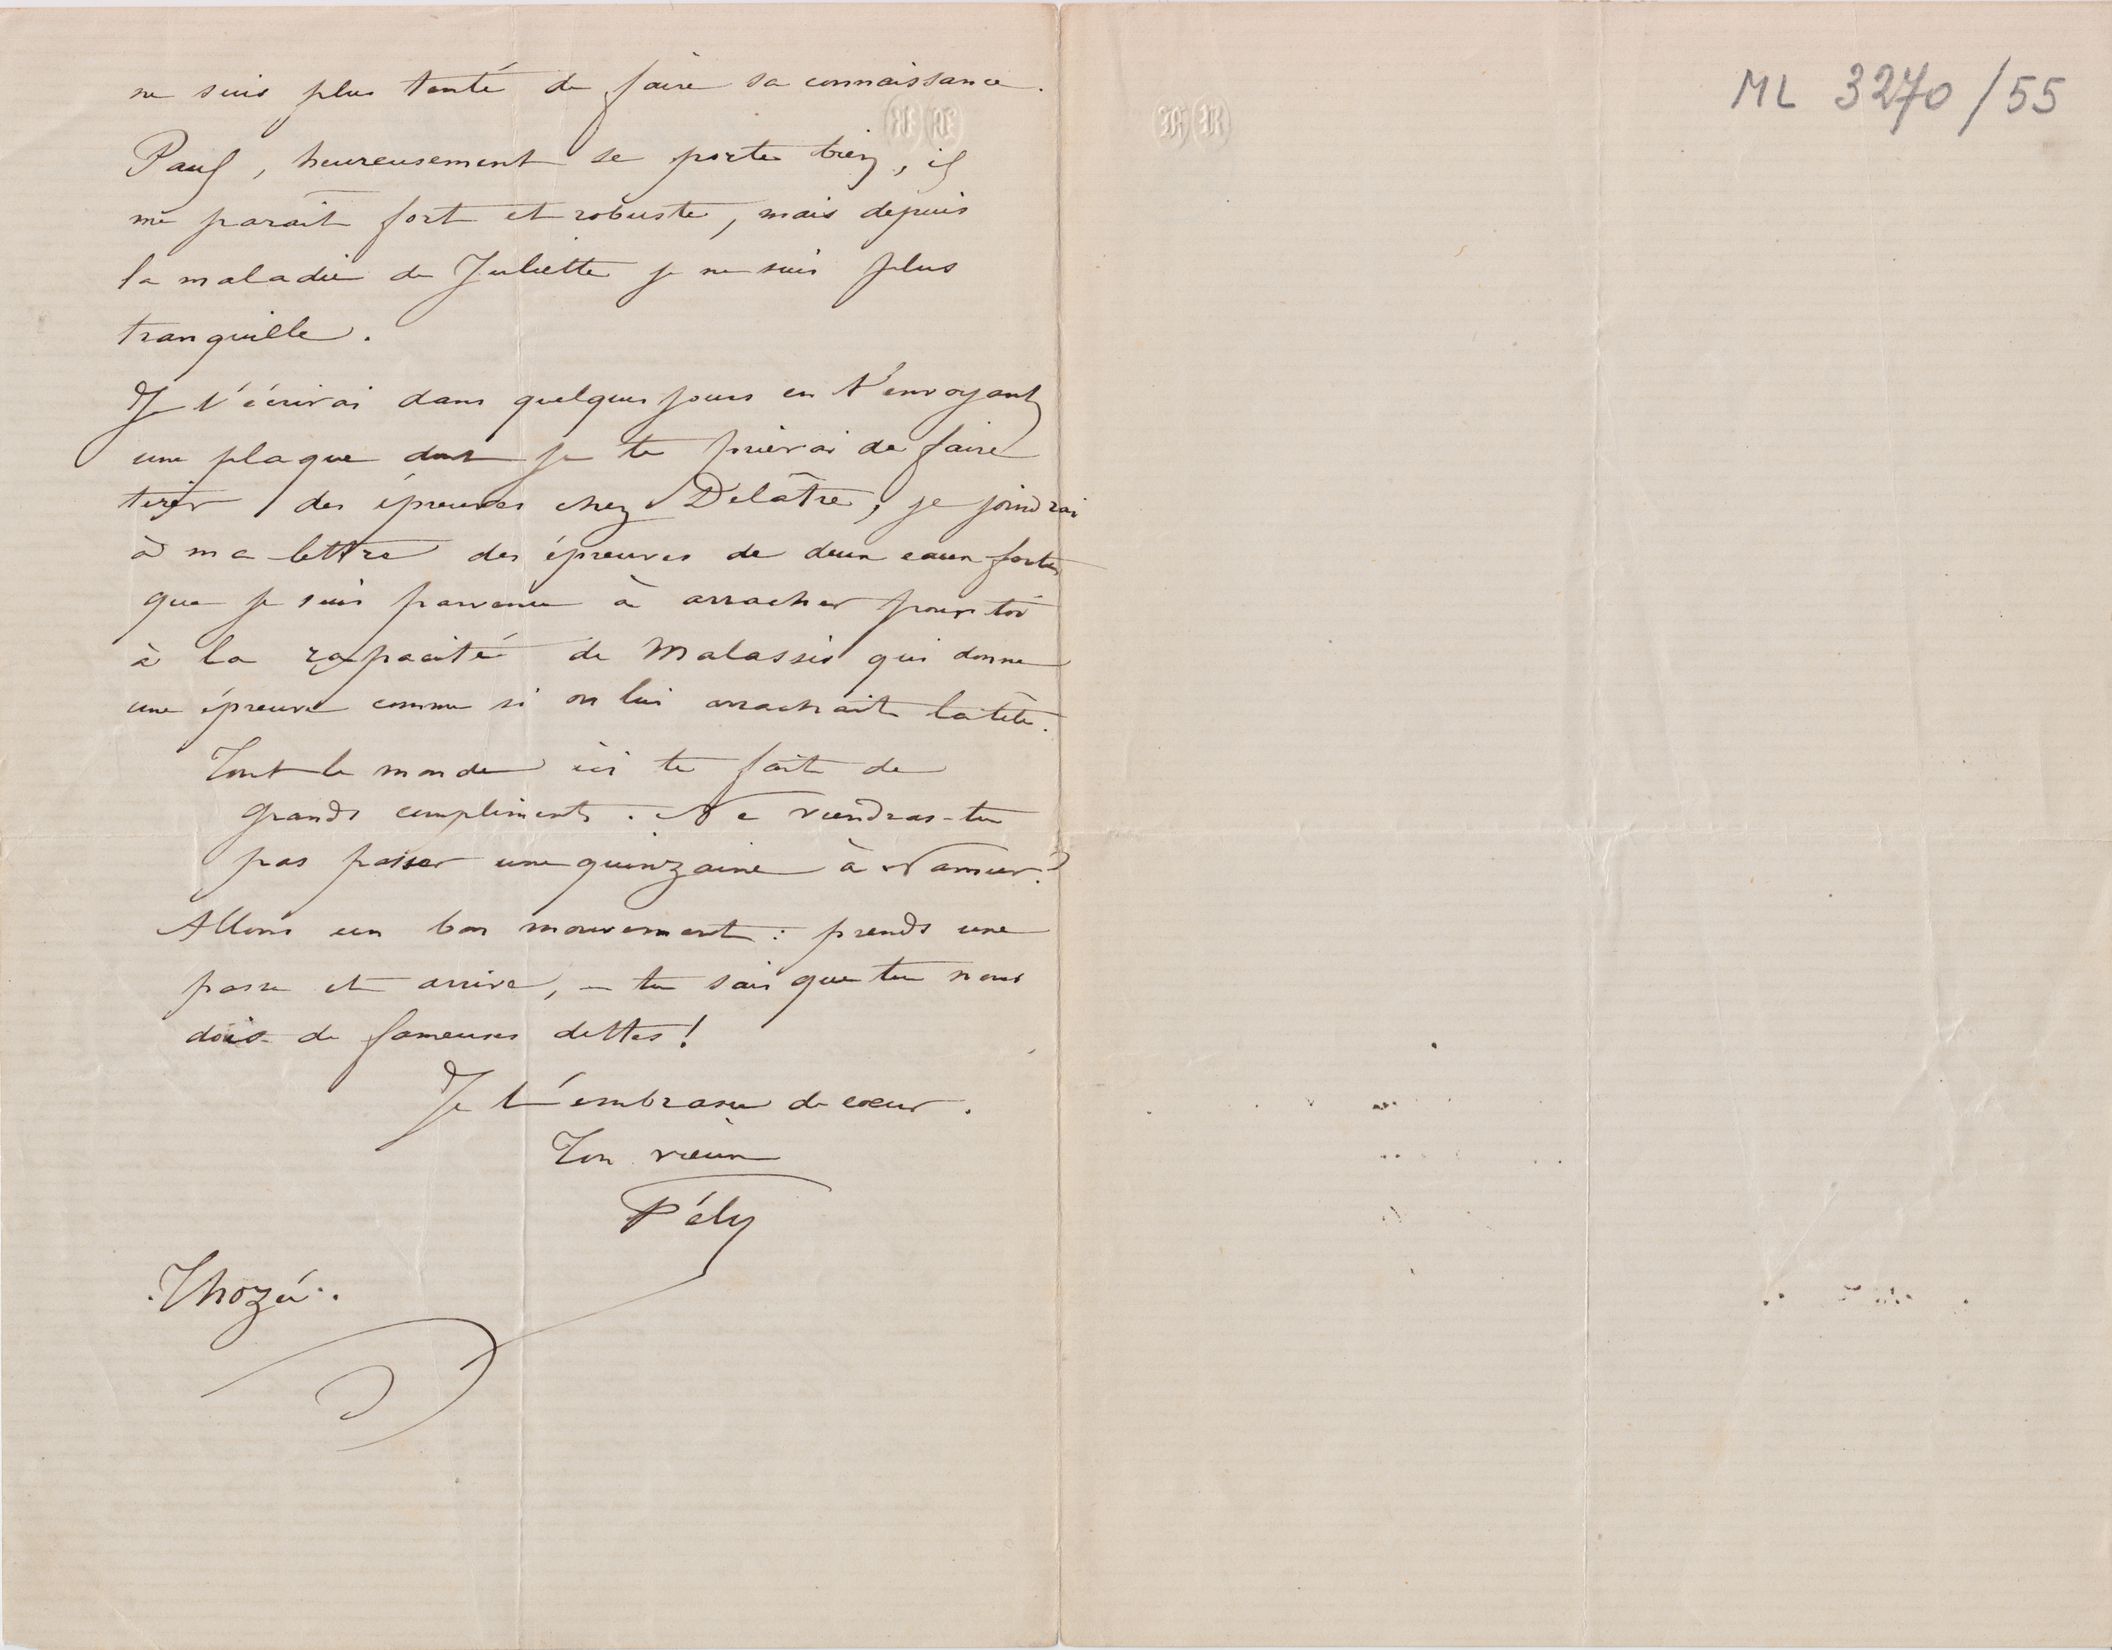 ne suis plus tenté de faire sa connaissance.
Paul, heureusement se porte bien, il
me parait fort et robuste, mais depuis
la maladie de Juliette je ne suis plus
tranquille.
Je t'écrirai dans quelques jours en t'envoyant
une plaque dont je te prierai de faire
tirer des épreuves chez Delâtre, je joindrai
à ma lettre des épreuves de deux eaux fortes
que je suis parvenu à arracher pour toi
à la rapacité de Malassis qui donne
une épreuve comme si on lui arrachait la tête.
Tout le monde ici te fait de
grands compliments. Ne viendras-tu
pas passer une quinzaine à Namur?
Allons un bon mouvement: prends une
passe et arrive, – tu sais que tu nous
dois de fameuses dettes!
Je t'embrasse de cœur.
Ton vieux
Fély
Thozée.
RR
ML 3270/55